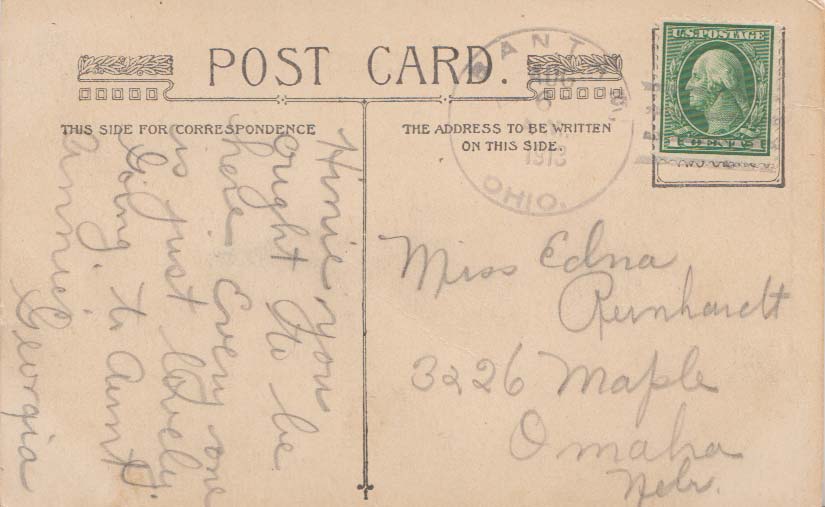 POST CARD.
THIS SIDE FOR CORRESPONDENCE
THE ADDRESS TO BE WRITTEN
ON THIS SIDE.
AUG
1913
OHIO.
U.S. POSTAGE
1 CENT 1
Hinie you
ought to be
here. Every one
is just lovely
Going to Aunt
Annie.
Georgia
Miss Edna
Reinhardt
3226 Maple
Omaha
Nebr.